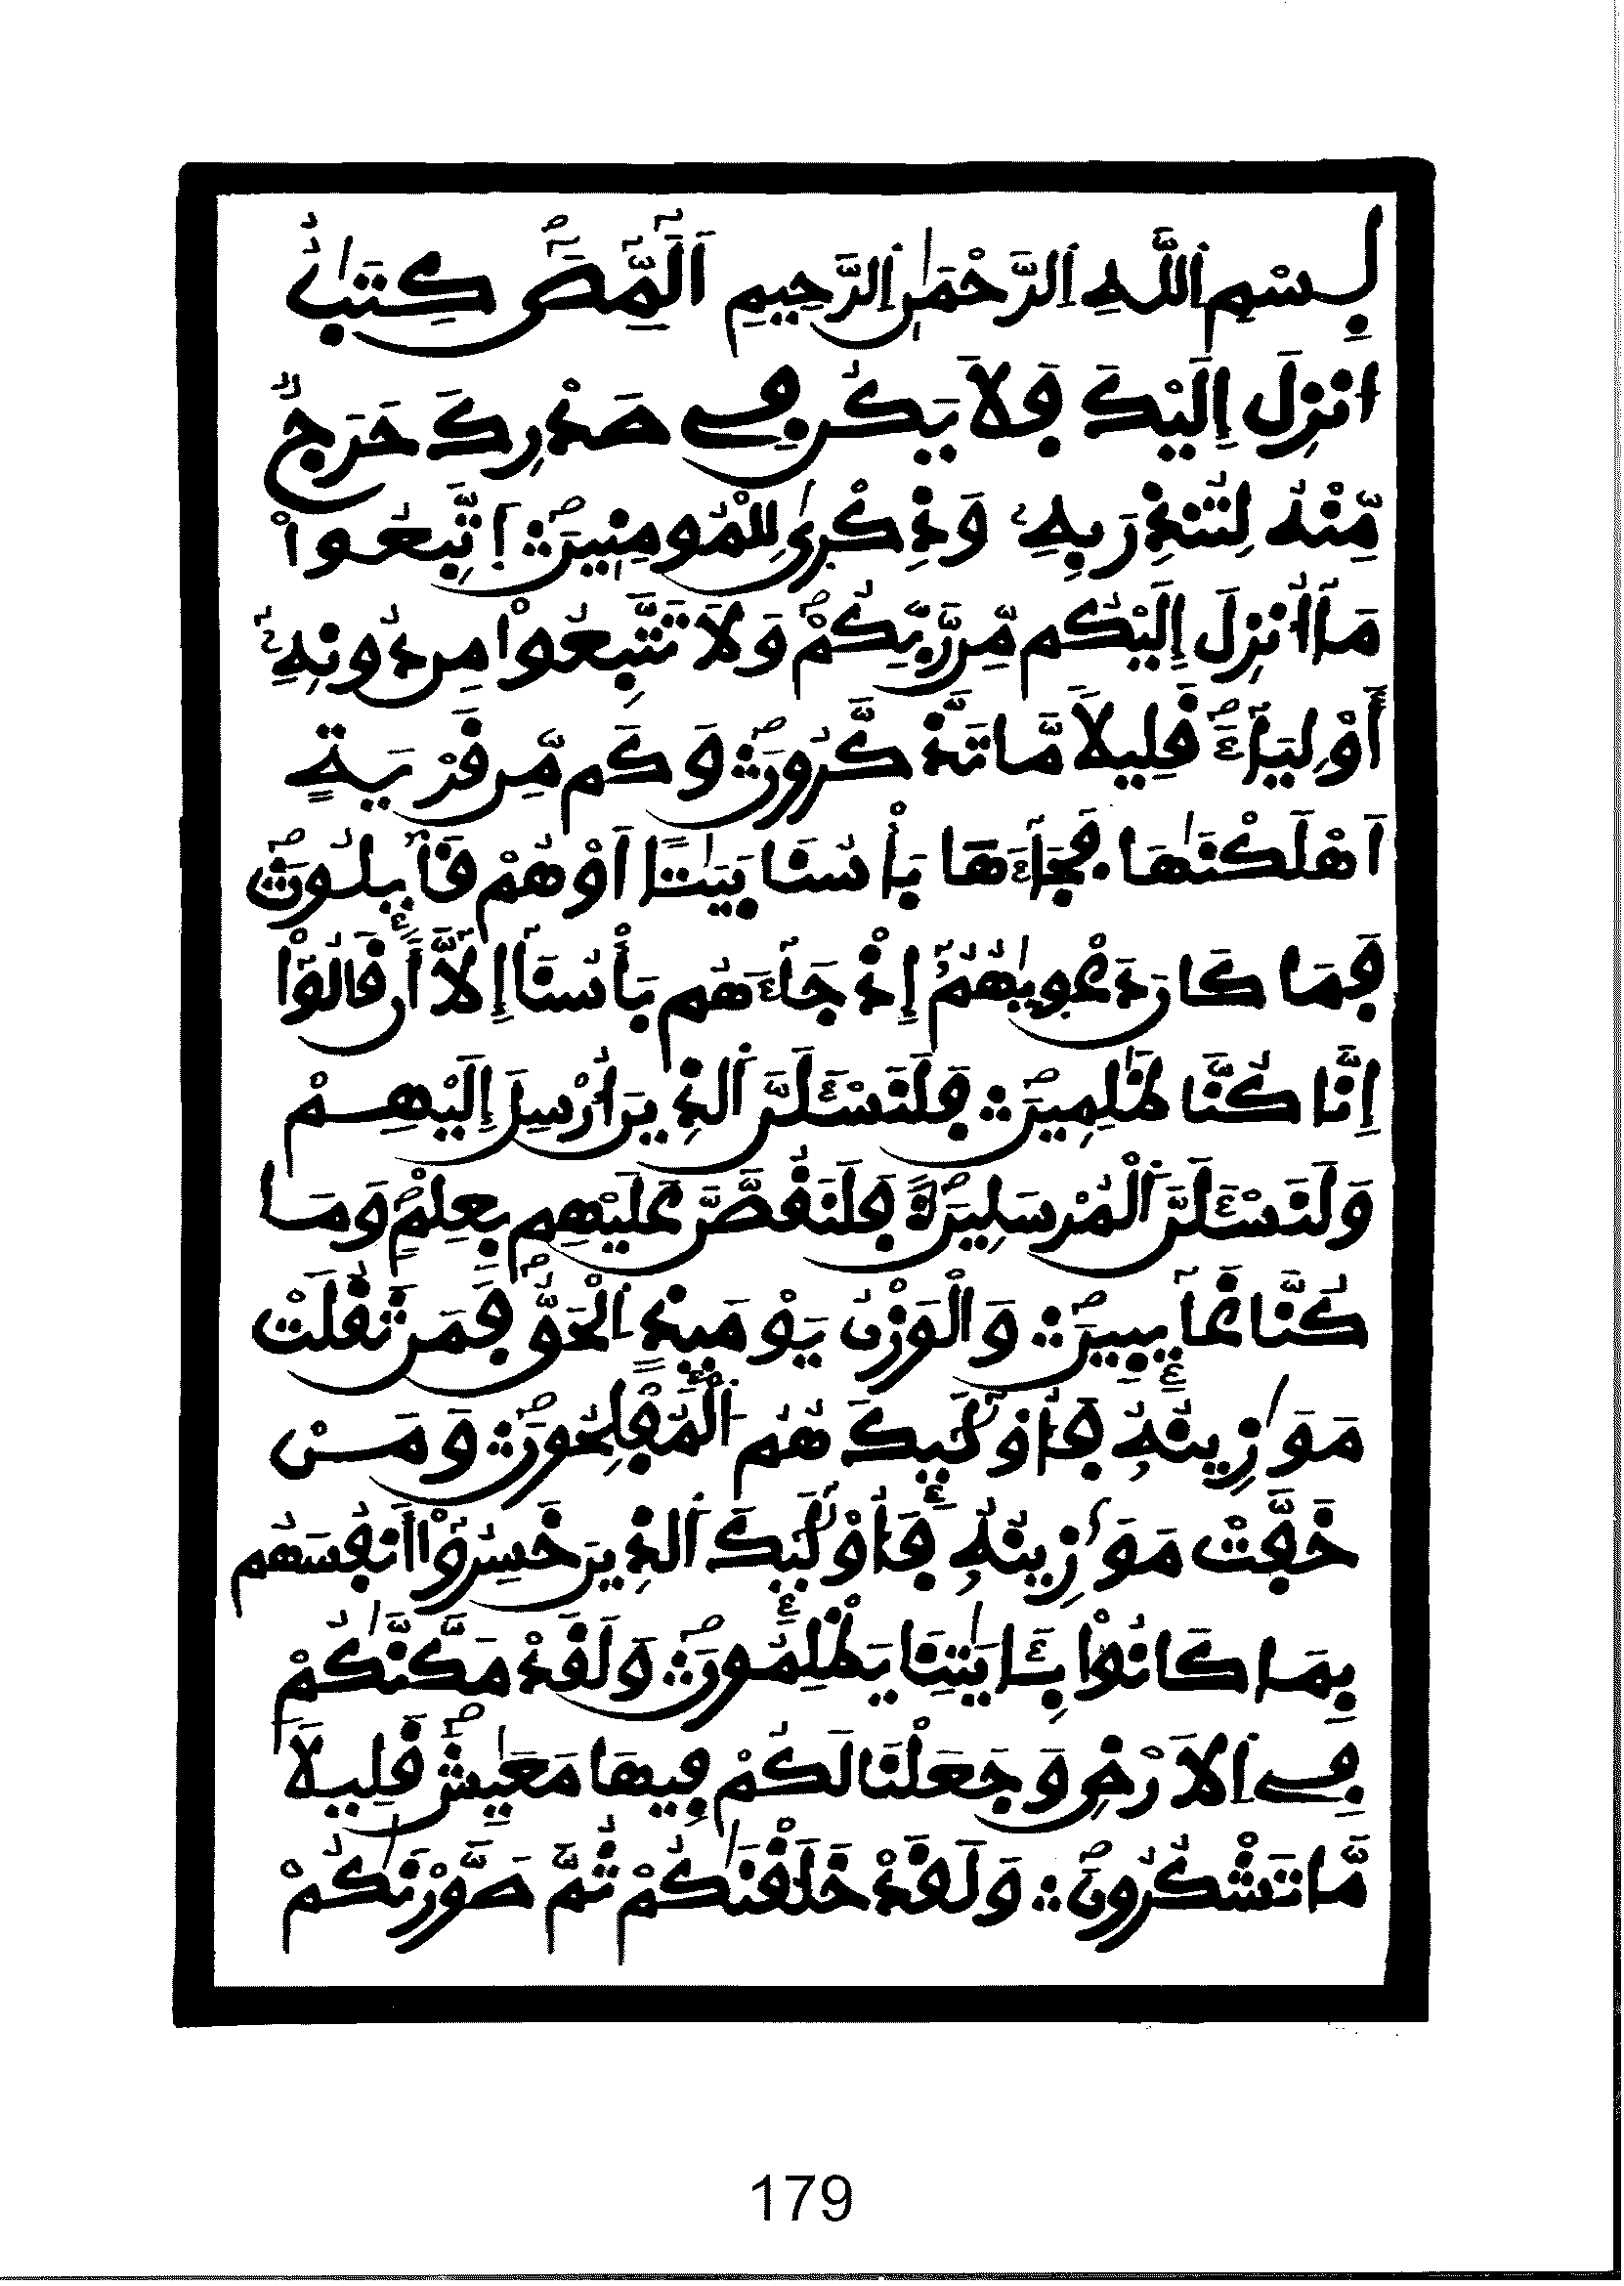 بِسْمِ اِ۬للَّهِ اِ۬لرَّحْمَٰنِ اِ۬لرَّحِيمِ أَلَٓمِّٓصَٓۖ كِتَٰبٌ
ا۟نزِلَ إِلَيْكَ فَلَا يَكُن فِے صَدْرِكَ حَرَجٞ
مِّنْهُ لِتُنذِرَ بِهِۦ وَذِكْرَىٰ لِلْمُومِنِينَۖ ۝ اَ۪تَّبِعُواْ
مَآ أُنزِلَ إِلَيْكُم مِّن رَّبِّكُمْۖ وَلَا تَتَّبِعُواْ مِن دُونِهِۦٓ
أَوْلِيَآءَۖ قَلِيلاٗ مَّا تَذَّكَّرُونَۖ ۝ وَكَم مِّن قَرْيَةٍ
اَهْلَكْنَٰهَا فَجَآءَهَا بَأْسُنَا بَيَٰتاً اَوْ هُمْ قَآئِلُونَۖ ۝
فَمَا كَانَ دَعْوِيٰهُمُۥٓ إِذْ جَآءَهُم بَأْسُنَآ إِلَّآ أَن قَالُوٓاْ
إِنَّا كُنَّا ظَٰلِمِينَۖ ۝ فَلَنَسْـَٔلَنَّ اَ۬لذِينَ أُرْسِلَ إِلَيْهِمْ
وَلَنَسْـَٔلَنَّ اَ۬لْمُرْسَلِينَۖ ۝ فَلَنَقُصَّنَّ عَلَيْهِم بِعِلْمٖۖ وَمَا
كُنَّا غَآئِبِينَۖ ۝ وَالْوَزْنُ يَوْمَئِذٍ اِ۬لْحَقُّۖ فَمَن ثَقُلَتْ
مَوَٰزِينُهُۥ فَأُوْلَٰٓئِكَ هُمُ اُ۬لْمُفْلِحُونَۖ ۝ وَمَنْ
خَفَّتْ مَوَٰزِينُهُۥ فَأُوْلَٰٓئِكَ اَ۬لذِينَ خَسِرُوٓاْ أَنفُسَهُم
بِمَا كَانُواْ بِـَٔايَٰتِنَا يَظْلِمُونَۖ ۝ وَلَقَدْ مَكَّنَّٰكُمْ
فِے اِ۬لَارْضِ وَجَعَلْنَا لَكُمْ فِيهَا مَعَٰيِشَۖ قَلِيلاٗ
مَّا تَشْكُرُونَۖ ۝ وَلَقَدْ خَلَقْنَٰكُمْ ثُمَّ صَوَّرْنَٰكُمْ
179